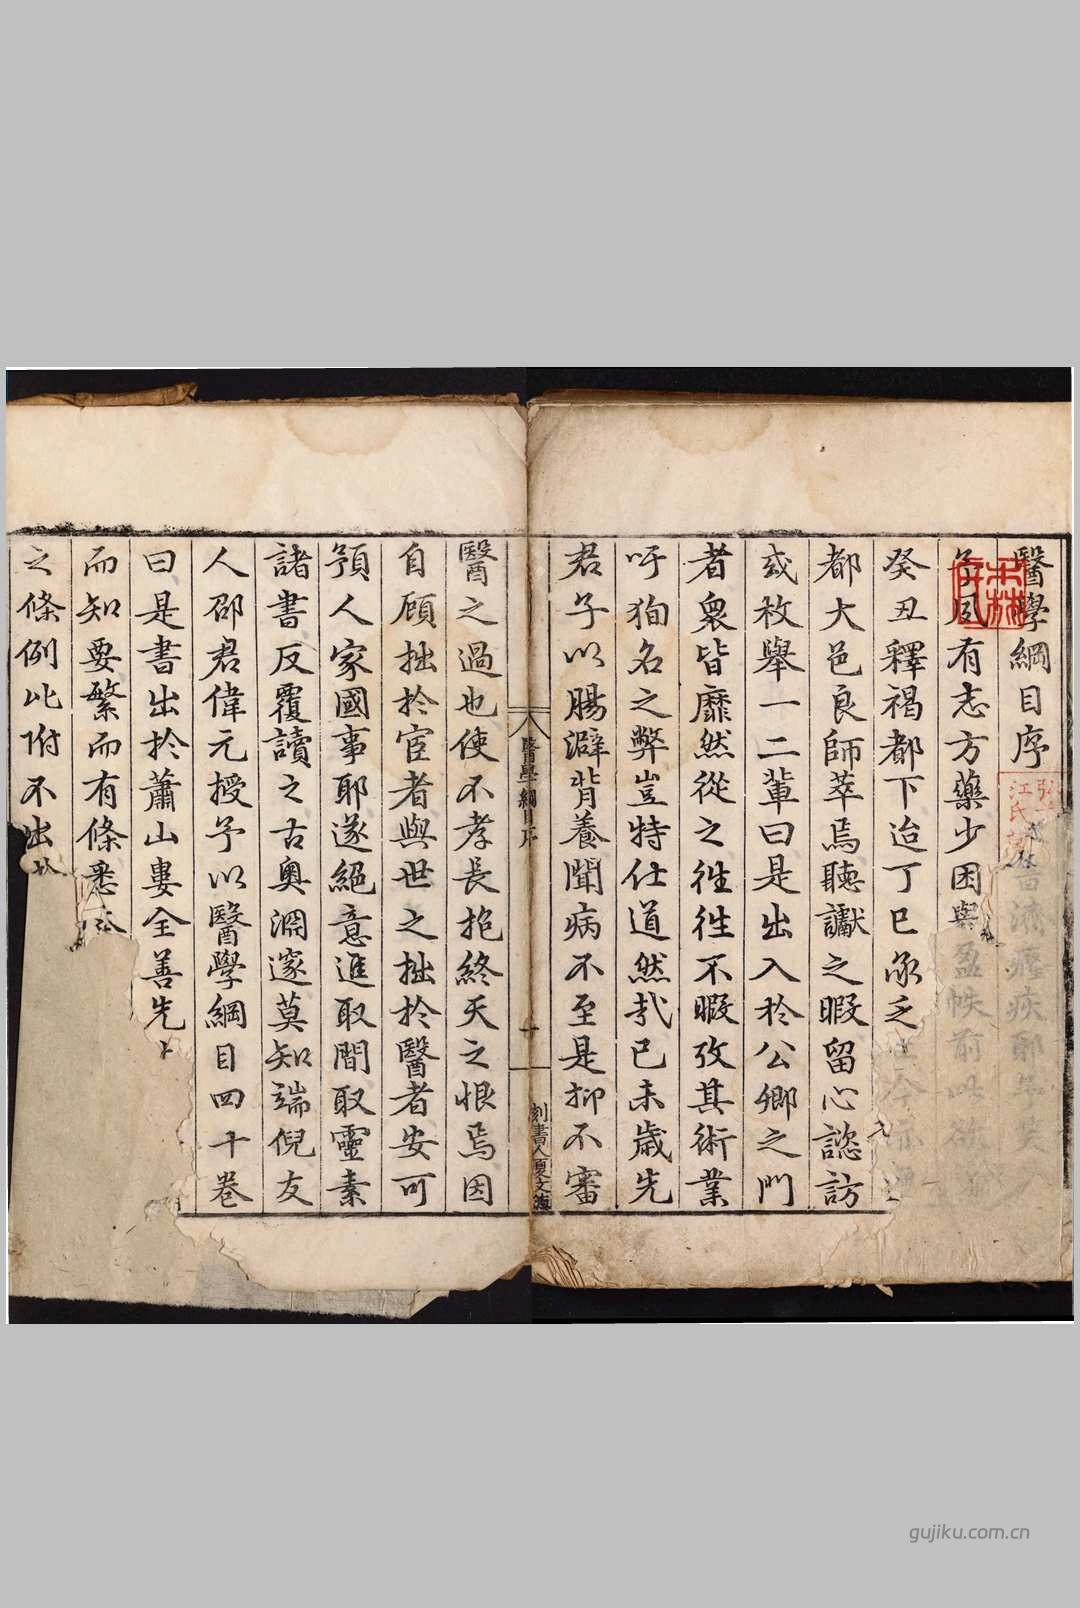 醫學綱目序
有志方藥少困與
癸丑釋褐都下迨丁巳承乏
都大邑良師萃焉聽讞之暇留心諮訪
或枚舉一二輩曰是出入於公卿之門
者衆皆靡然從之徃徃不暇攷其術業
吁狥名之弊豈特仕道然㢤已未歳先
君子以腸澼背養聞病不至是抑不審
醫學綱目序
刻書人夏文德
醫之過也使不孝長抱終天之恨焉因
自顧拙於宦者與世之拙於醫者安可
預人家國事耶遂絕意進取間取靈素
諸書反覆讀之古奥淵邃莫知端倪友
人邵君偉元授予以醫學綱目四十卷
曰是書出於蕭山婁全善先
而知要繁而有條悉
之條例此附不出
gujiku.com.cn